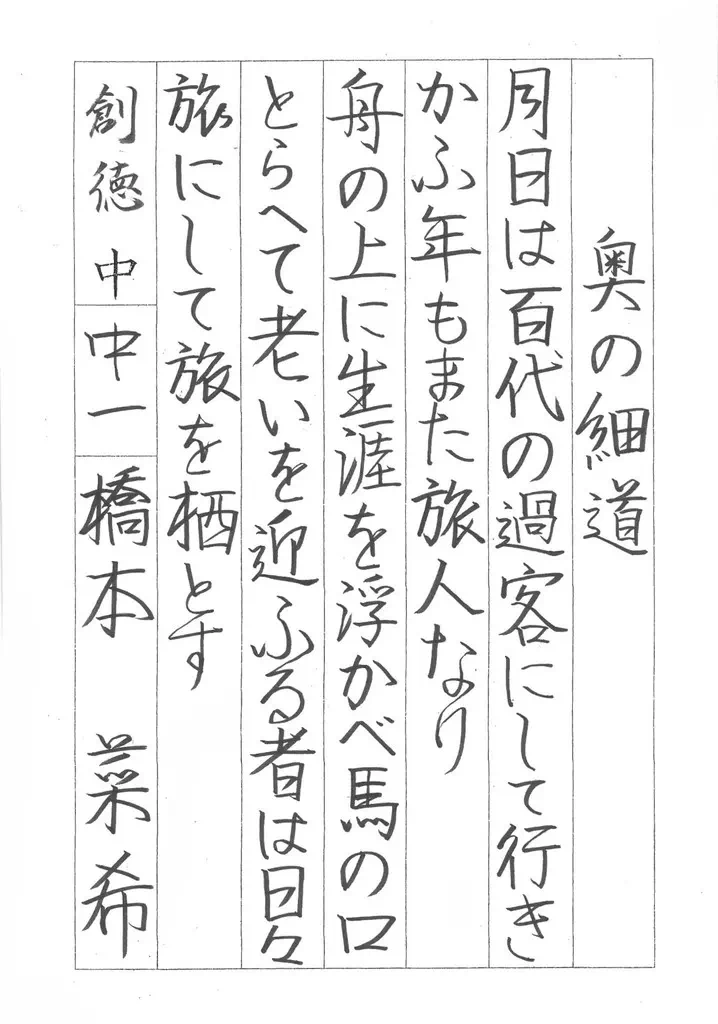 奥の細道
月日は百代の過客にして行き
かふ年もまた旅人なり
舟の上に生涯を浮かべ馬の口
とらへて老いを迎ふる者は日々
旅にして旅を栖とす
創徳中 中一 橋本 菜希